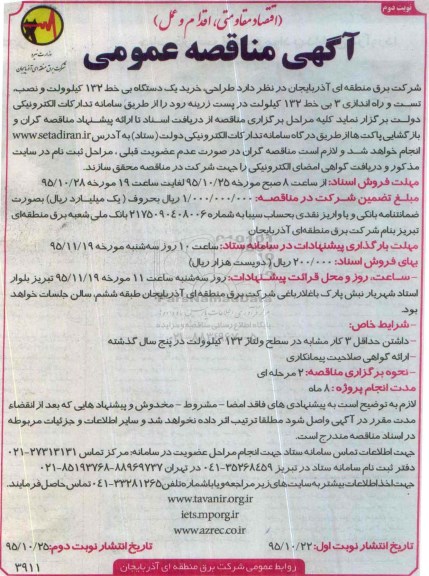 نوبت دوم
(اقتصاد مقاومتی، اقدام و عمل)
آگهی مناقصه عمومی
شرکت برق منطقه ای آذربایجان
شرکت برق منطقه ای آذربایجان در نظر دارد طراحی، خرید یک دستگاه بی خط ۱۳۲ کیلوولت و نصب،
تست و راه اندازی ۳ بی خط ۱۳۲ کیلولت در پست زرینه رود را از طریق سامانه تدارکات الکترونیکی
دولت برگزار نماید کلیه مراحل برگزاری مناقصه از دریافت اسناد تا ارائه پیشنهاد مناقصه گران و
بازگشایی پاکت ها از طریق درگاه سامانه تدارکات الکترونیکی دولت (ستاد) به آدرس www.setadiran.ir
انجام خواهد شد و لازم است مناقصه گران در صورت عدم عضویت قبلی ، مراحل ثبت نام در سایت
مذکور و دریافت گواهی امضای الکترونیکی را جهت شرکت در مناقصه محقق سازند.
مهلت فروش اسناد: از ساعت ۸ صبح مورخه ۹۵/۱۰/۲۵ لغایت ساعت ۱۹ مورخه ۹۵/۱۰/۲۸
مبلغ تضمین شرکت در مناقصه: ۱/۰۰۰/۰۰۰/۰۰۰ ریال بحروف ( یک میلیارد ریال) بصورت
ضمانتنامه بانکی و یا واریز نقدی بحساب سیبا به شماره ۲۱۷۵۰۹۰۴۰۸۰۰۶ بانک ملی شعبه برق منطقه‌ای
تبریز بنام شرکت برق منطقه‌ای آذربایجان
مهلت بارگذاری پیشنهادات در سامانه ستاد: ساعت ۱۰ روز سه‌شنبه مورخه ۹۵/۱۱/۱۹
بهای فروش اسناد: ۲۰۰/۰۰۰ ریال ( دویست هزار ریال)
- ساعت، روز و محل قرائت پیشنهادات: روز سه‌شنبه ساعت ۱۱ مورخه ۹۵/۱۱/۱۹ تبریز بلوار
استاد شهریار نبش پارک باغلارباغی شرکت برق منطقه ای آذربایجان طبقه ششم، سالن جلسات خواهد
بود.
- شرایط خاص:
- داشتن حداقل ۳ کار مشابه در سطح ولتاژ ۱۳۲ کیلوولت در پنج سال گذشته
- ارائه گواهی صلاحیت پیمانکاری
- نحوه برگزاری مناقصه: ۲ مرحله ای
مدت انجام پروژه : ۸ ماه
لازم به توضیح است به پیشنهادی های فاقد امضا - مشروط - مخدوش و پیشنهاد هایی که بعد از انقضاء
مدت مقرر در آگهی واصل شود مطلقا ترتیب اثر داده نخواهد شد و سایر اطلاعات و جزئیات مربوطه
در اسناد مناقصه مندرج است.
جهت اطلاعات تماس سامانه ستاد جهت انجام مراحل عضویت در سامانه: مرکز تماس ۲۷۳۱۳۱۳۱-۰۲۱
دفتر ثبت نام سامانه ستاد در تبریز ۳۵۲۶۸۴۵۹-۰۴۱ در تهران ۸۸۹۶۹۷۳۷-۸۵۱۹۳۷۶۸-۰۲۱
جهت اخذ اطلاعات بیشتر به سایت های زیر مراجعه و یا با شماره تلفن ۳۳۲۸۱۲۶۵-۰۴۱ تماس حاصل فرمایند.
www.tavanir.org.ir
iets.mporg.ir
www.azrec.co.ir
تاریخ انتشار نوبت اول: ۹۵/۱۰/۲۲ تاریخ انتشار نوبت دوم: ۹۵/۱۰/۲۵
روابط عمومی شرکت برق منطقه ای آذربایجان
۳۹۱۱